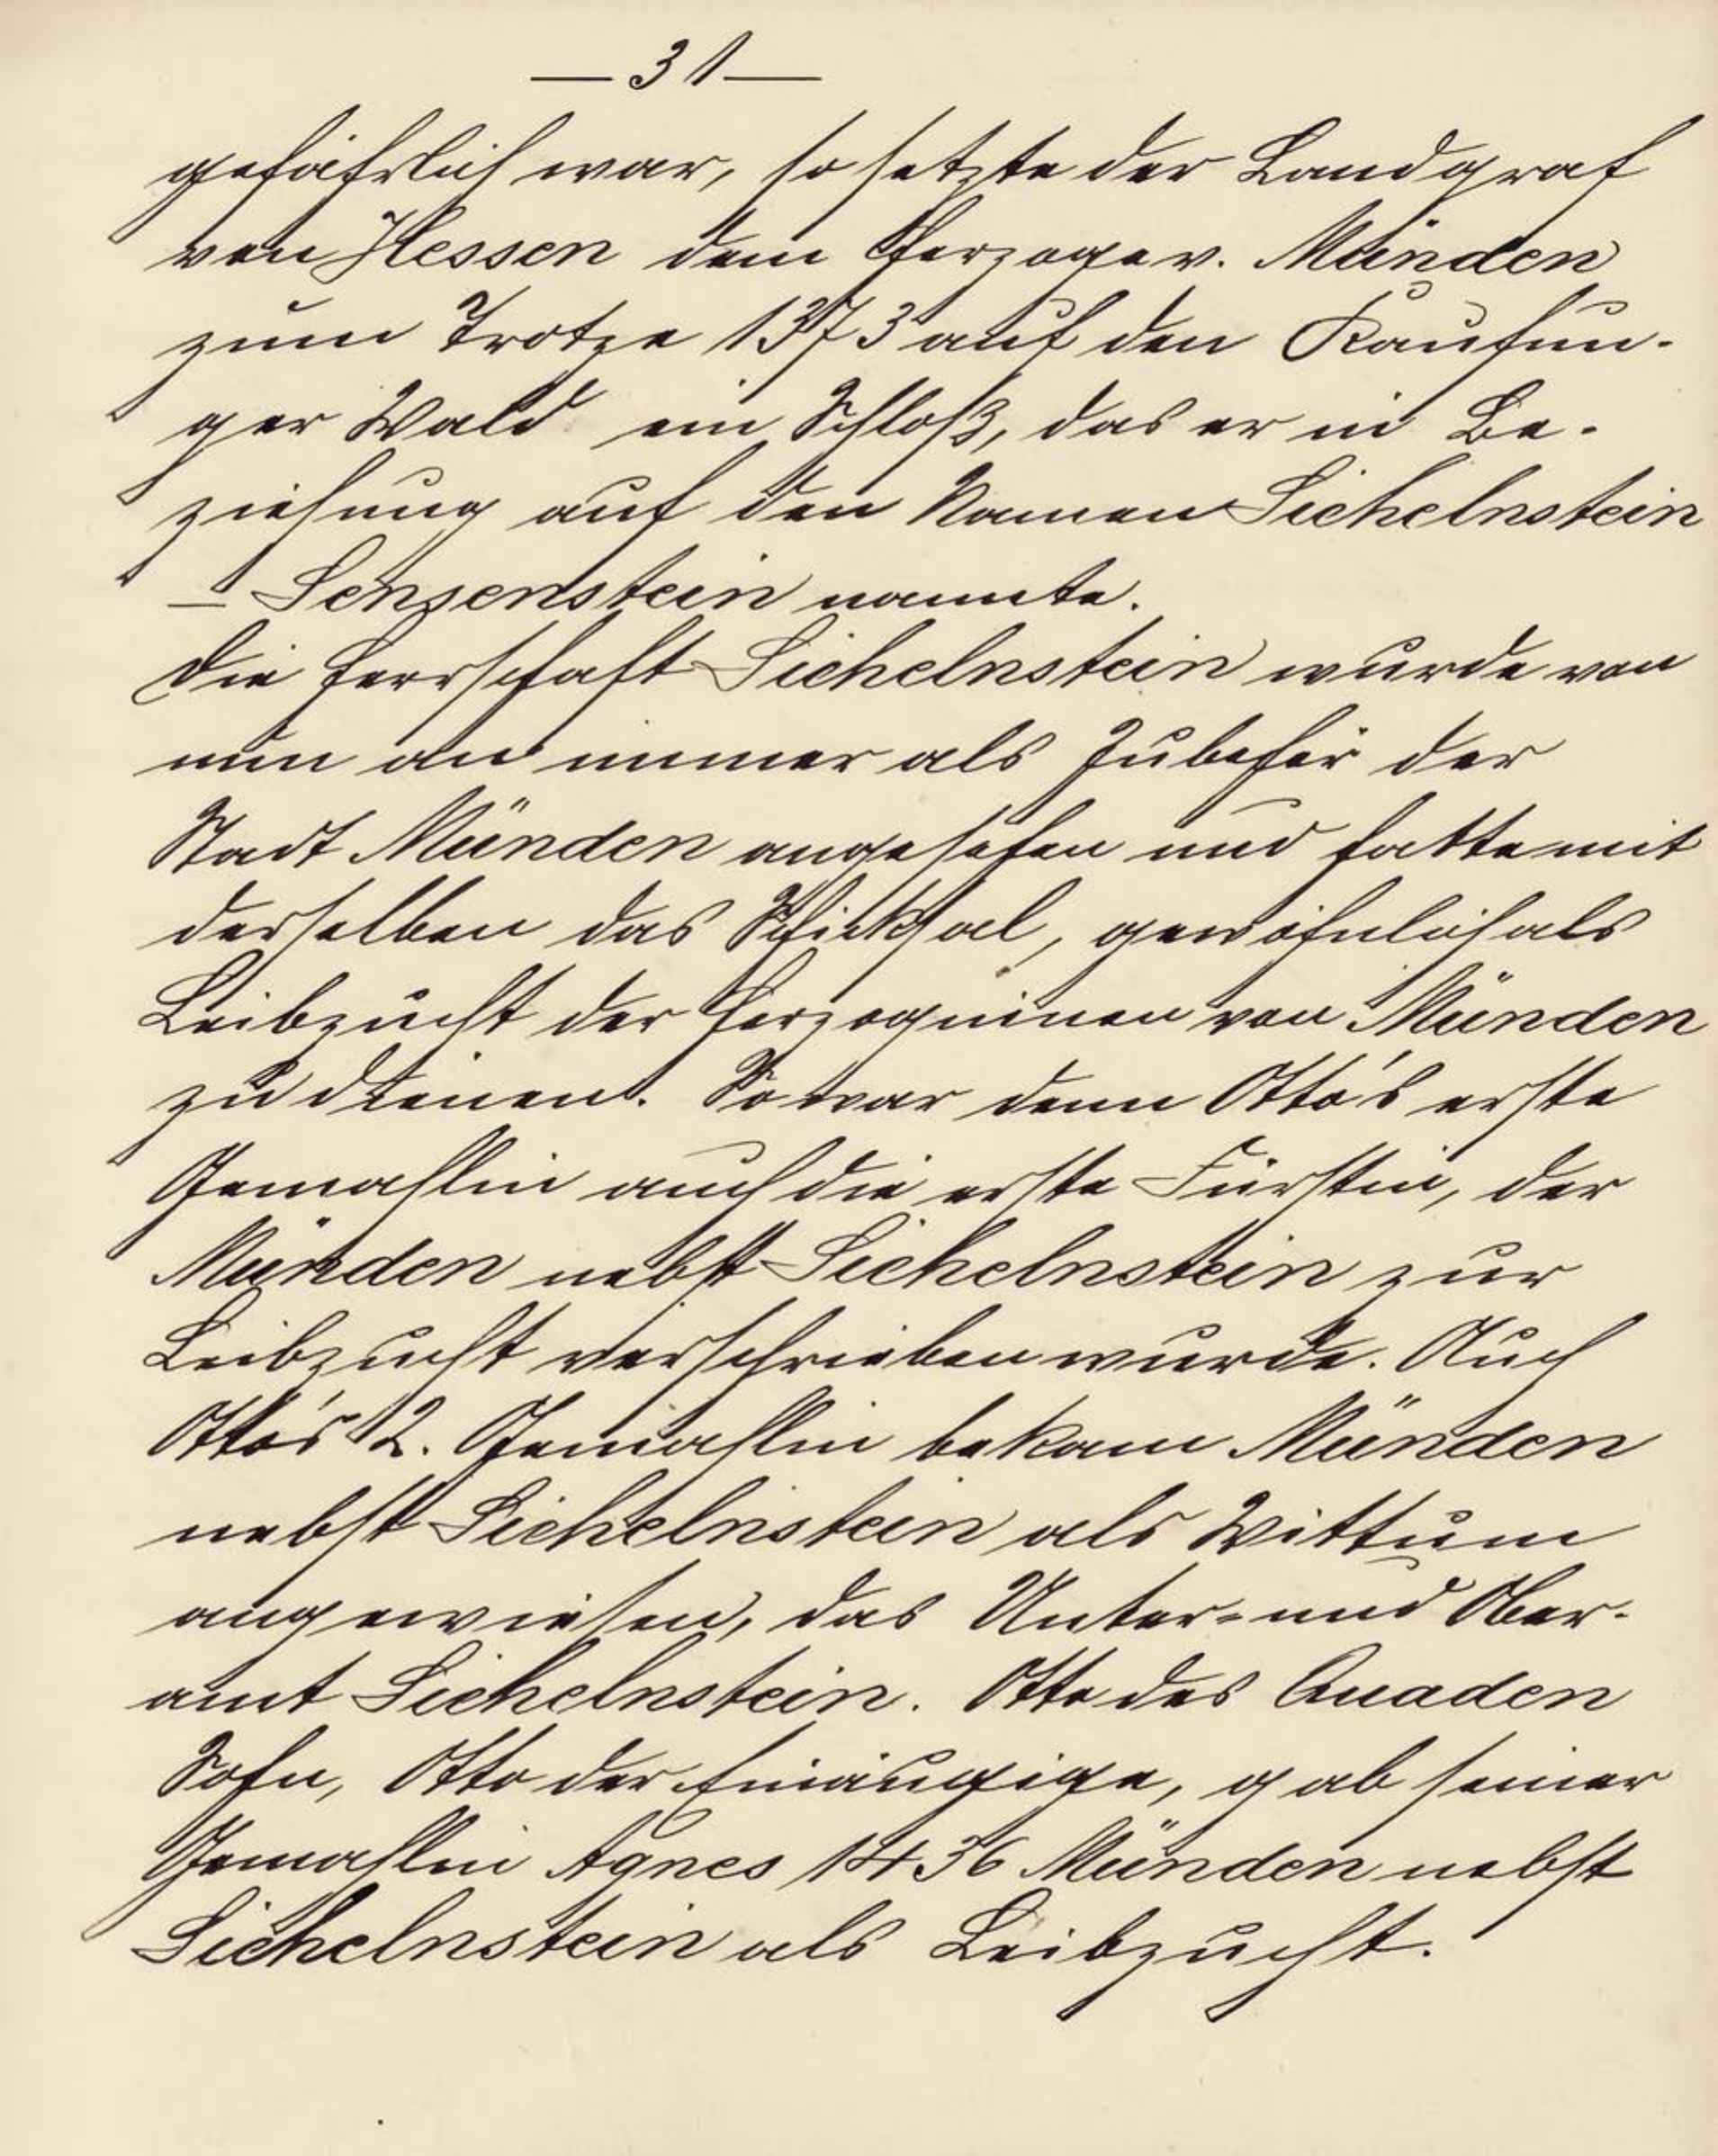 — 31 —
gefährlich war, so setzte der Landgraf
von Hessen dem Herzoge v. Münden
zum Trotze 1373 auf den Kaufun-
ger Wald ein Schloß, das er in Be-
ziehung auf den Namen Sichelnstein
– Sensenstein nannte.
Die Herrschaft Sichelnstein wurde von
nun an immer als Zubehör der
Stadt Münden angesehen und hatte mit
derselben das Schicksal, gewöhnlich als
Leibzucht der Herzoginnen von Münden
zu dienen. So war denn Otto's erste
Gemahlin auch die erste Fürstin, der
Münden nebst Sichelnstein zur
Leibzucht verschrieben wurde. Auch
Otto's 2. Gemahlin bekam Münden
nebst Sichelnstein als Wittum
angewiesen, das Unter- und Ober-
amt Sichelnstein. Otto des Quaden
Sohn, Otto der Einäugige, gab seiner
Gemahlin Agnes 1436 Münden nebst
Sichelnstein als Leibzucht.